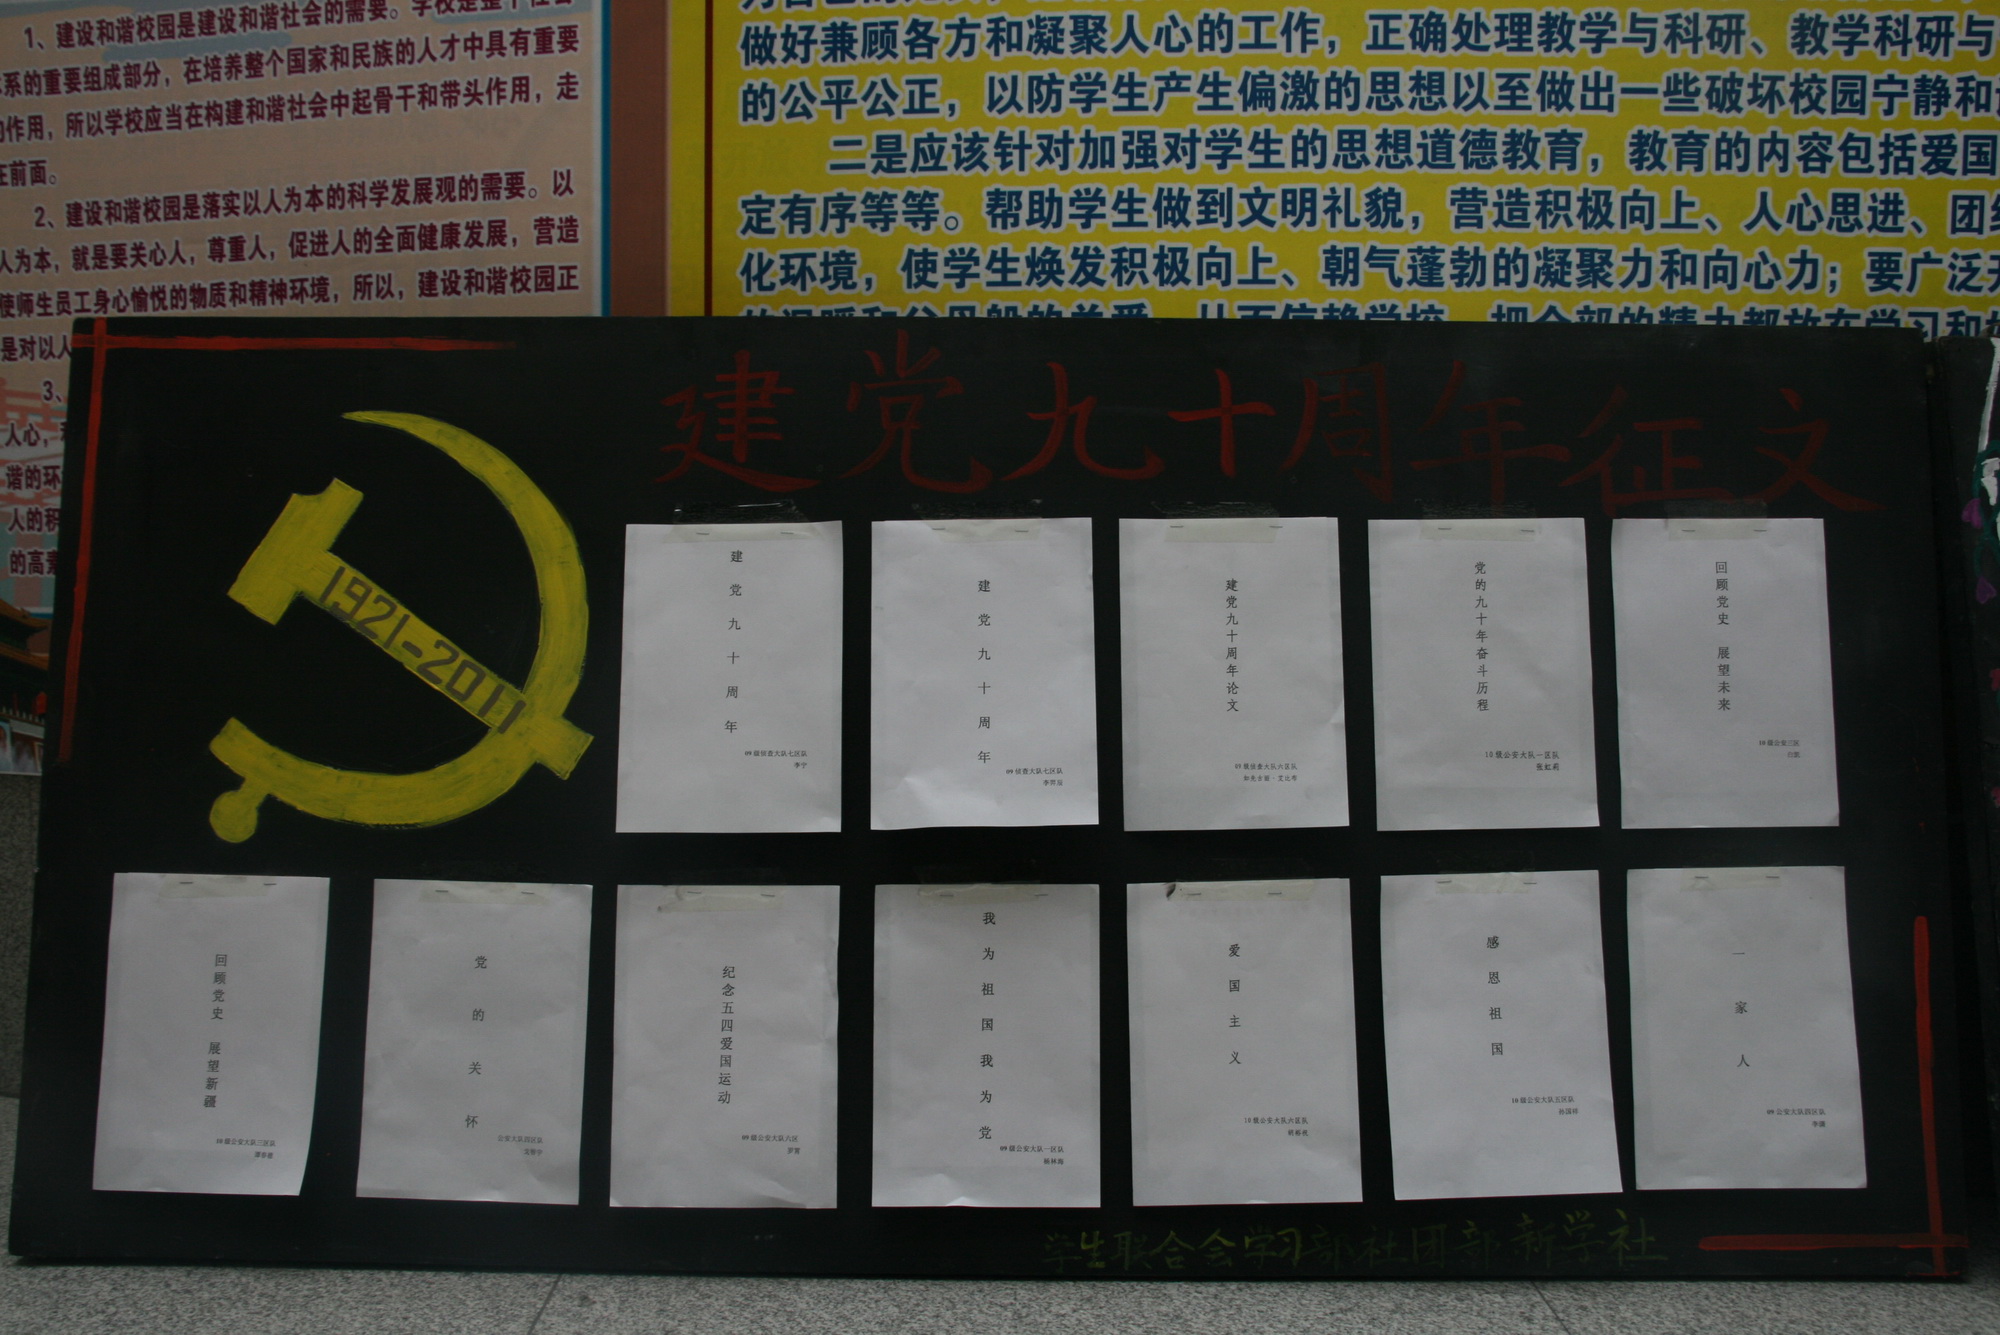 1、建设和谐校园是建设和谐社会的需要。学校是整个社会
系的重要组成部分，在培养整个国家和民族的人才中具有重要
作用，所以学校应当在构建和谐社会中起骨干和带头作用，走
在前面。
2、建设和谐校园是落实以人为本的科学发展观的需要。以
人为本，就是要关心人，尊重人，促进人的全面健康发展，营造
使师生员工身心愉悦的物质和精神环境，所以，建设和谐校园正
是对以人
3、
人心，
谐的环
人的积
的高素
做好兼顾各方和凝聚人心的工作，正确处理教学与科研、教学科研与
的公平公正，以防学生产生偏激的思想以至做出一些破坏校园宁静和
二是应该针对加强对学生的思想道德教育，教育的内容包括爱国
定有序等等。帮助学生做到文明礼貌，营造积极向上、人心思进、团结
化环境，使学生焕发积极向上、朝气蓬勃的凝聚力和向心力；要广泛开
建党九十周年征文
1921-2011
建党九十周年
09级侦查大队七区队
李宁
建党九十周年
09侦查大队七区队
建党九十周年论文
09级侦查大队六区队
党的九十年奋斗历程
10级公安大队一区队
张虹莉
回顾党史 展望未来
10级公安三区
回顾党史 展望新疆
10级公安大队三区队
党的关怀
公安大队四区队
纪念五四爱国运动
09级公安大队六区
我为祖国我为党
09级公安大队一区队
杨林海
爱国主义
10级公安大队六区队
感恩祖国
10级公安大队五区队
孙国祥
一家人
09公安大队四区队
学生联合会学习部社团部新学社